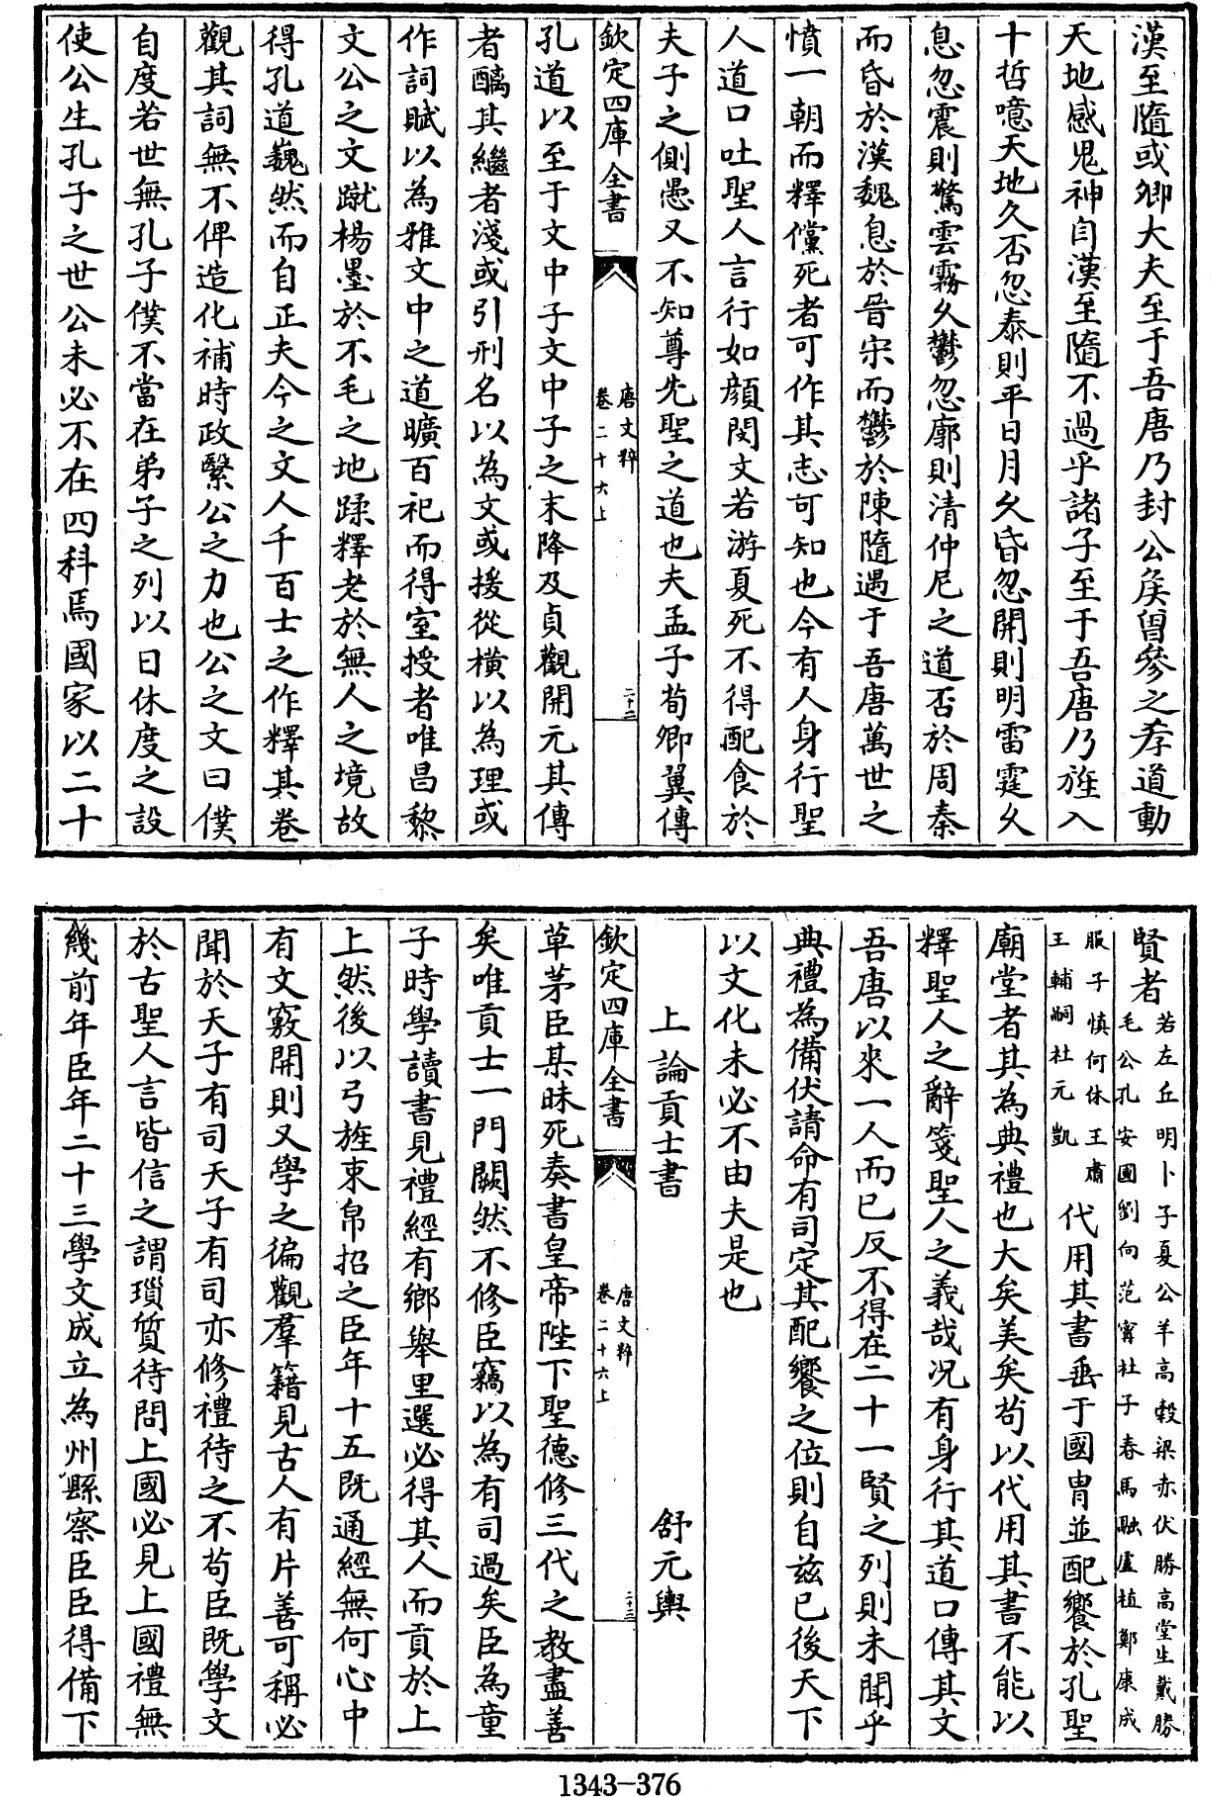 漢至隨或卿大夫至于吾唐乃封公矦曾參之孝道動
天地感鬼神自漢至隨不過乎諸子至于吾唐乃旌入
十哲噫天地久否忽泰則平日月久昏忽開則明雷霆久
息忽震則驚雲霧久鬱忽廓則清仲尼之道否於周秦
而昏於漢魏息於晉宋而鬱於陳隨遇于吾唐萬世之
憤一朝而釋儻死者可作其志可知也今有人身行聖
人道口吐聖人言行如顔閔文若游夏死不得配食於
夫子之側愚又不知尊先聖之道也夫孟子荀卿翼傳
欽定四庫全書
唐文粹
卷二十六上
二十二
孔道以至于文中子文中子之末降及貞觀開元其傳
者醨其繼者淺或引刑名以為文或援從橫以為理或
作詞賦以為雅文中之道曠百祀而得室授者唯昌黎
文公之文蹴楊墨於不毛之地蹂釋老於無人之境故
得孔道巍然而自正夫今之文人千百士之作釋其卷
觀其詞無不俾造化補時政繄公之力也公之文曰僕
自度若世無孔子僕不當在弟子之列以日休度之設
使公生孔子之世公未必不在四科焉國家以二十
賢者
若左丘明卜子夏公羊高穀梁赤伏勝高堂生戴勝
毛公孔安國劉向范甯杜子春馬融盧植鄭康成
服子慎何休王肅
王輔嗣杜元凱
代用其書垂于國胄並配饗於孔聖
廟堂者其為典禮也大矣美矣苟以代用其書不能以
釋聖人之辭箋聖人之義哉况有身行其道口傳其文
吾唐以來一人而已反不得在二十一賢之列則未聞乎
典禮為備伏請命有司定其配饗之位則自兹已後天下
以文化未必不由夫是也
上論貢士書
舒元輿
欽定四庫全書
唐文粹
卷二十六上
二十三
草茅臣某昧死奏書皇帝陛下聖德修三代之教盡善
矣唯貢士一門闕然不修臣竊以為有司過矣臣為童
子時學讀書見禮經有鄉舉里選必得其人而貢於上
上然後以弓旌束帛招之臣年十五既通經無何心中
有文竅開則又學之徧觀羣籍見古人有片善可稱必
聞於天子有司天子有司亦修禮待之不苟臣既學文
於古聖人言皆信之謂瓆質待問上國必見上國禮無
幾前年臣年二十三學文成立為州縣察臣臣得備下
1343-376